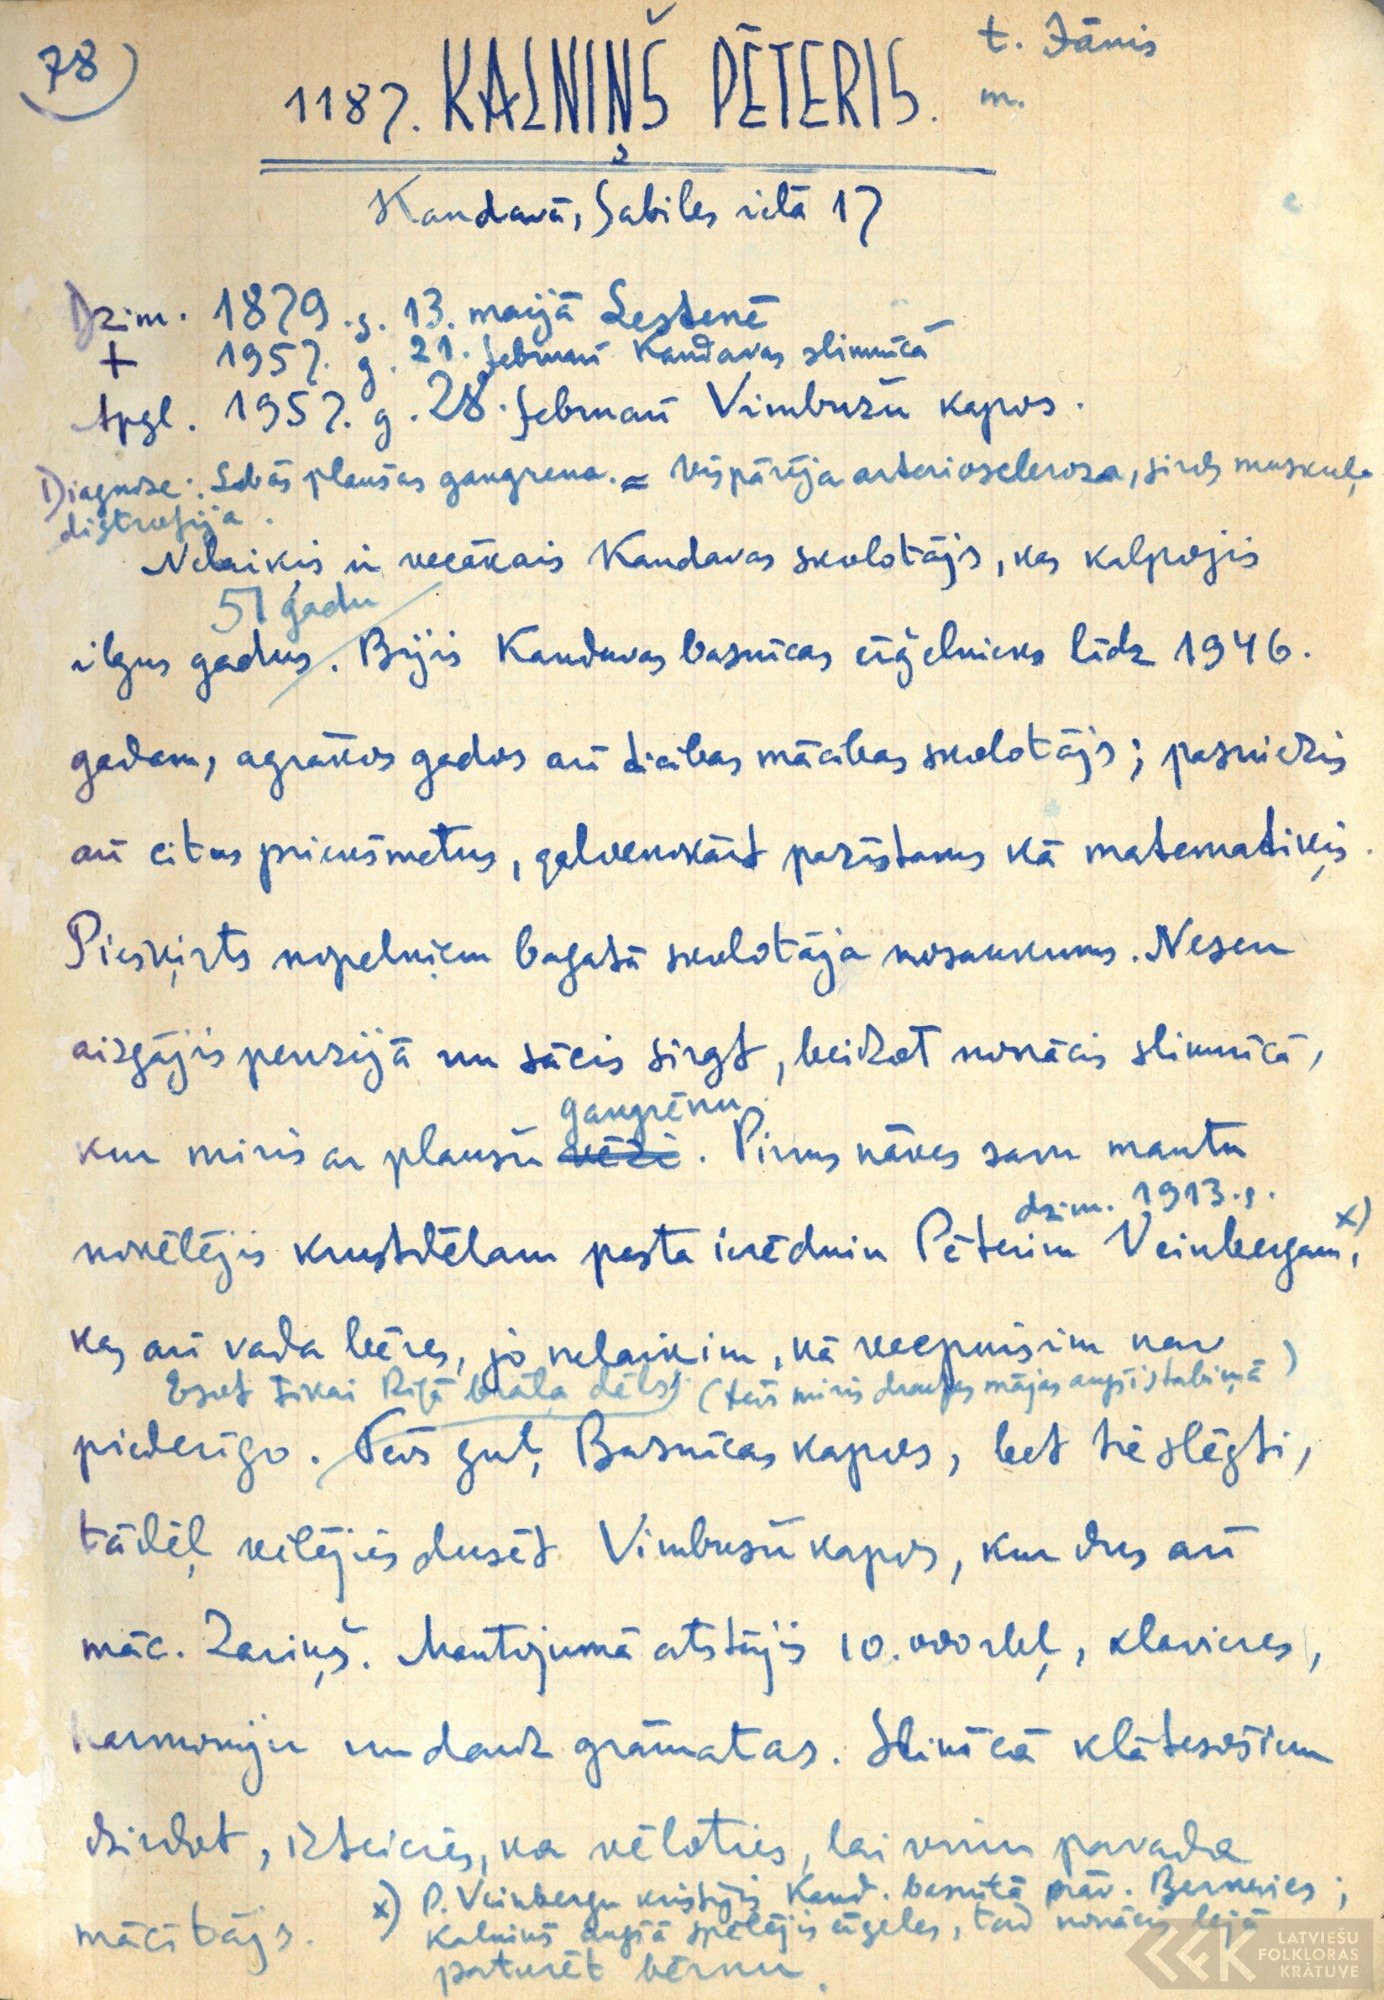 78
t. Jānis
m.
1187. KALNIŅŠ PĒTERIS.
Kandavā, Sabiles ielā 17
Dzim. 1879. g. 13. maijā Lestenē
+ 1957. g. 21. februarī Kandavas slimnīcā
Apgl. 1957. g. 28. februarī Vimbužu kapos.
Diagnoze: Labās plaušas gangrena. = Vispārēja arterioscleroza, sirds muskuļa
distrofija.
Nelaiķis ir vecākais Kandavas skolotājs, kas kalpojis
51 gadu
ilgus gadus. Bijis Kandavas basnīcas ērģelnieks līdz 1946.
gadam, agrākos gados arī ticības mācības skolotājs; pasniedzis
arī citus priekšmetus, galvenokārt pazīstams kā matematiķis.
Piešķirts nopelniem bagātā skolotāja nosaukums. Nesen
aizgājis pensijā un sācis sirgt, beidzot nonācis slimnīcā,
gangrēnu
kur miris ar plaušu vēzi. Pirms nāves savu mantu
dzim. 1913. g.
novēlējis krustdēlam pasta ierēdnim Pēterim Veinbergam, x)
kas arī vada bēres, jo nelaiķim, kā vecpuisim nav
Esot tikai Rīgā brāļa dēls. (tēvs miris draudzes mājas augšistabiņā)
piederīgo. Tēvs guļ Basnīcas kapos, bet tie slēgti,
tādēļ vēlējies dusēt Vimbušu kapos, kur dus arī
māc. Zariņš. Mantojumā atstājis 10.000 rbļ, klavieres,
harmoniju un daudz grāmatas. Slimīcā klātesošiem
dzirdot, izteicies, ka vēloties, lai viņu pavada
mācītājs.
x) P. Veinbergu kristījis Kand. basnīcā prāv. Bernevics;
Kalniņš augšā spēlējis ērģeles, tad nonācis lejā
paturēt bērnu.
LATVIEŠU
FOLKLORAS
KRĀTUVE